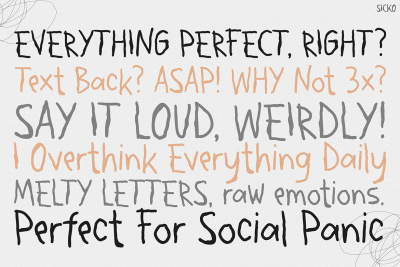 SICKO
EVERYTHING PERFECT, RIGHT?
Text Back? ASAP! WHY Not 3x?
SAY IT LOUD, WEIRDLY!
I Overthink Everything Daily
MELTY LETTERS, raw emotions.
Perfect For Social Panic